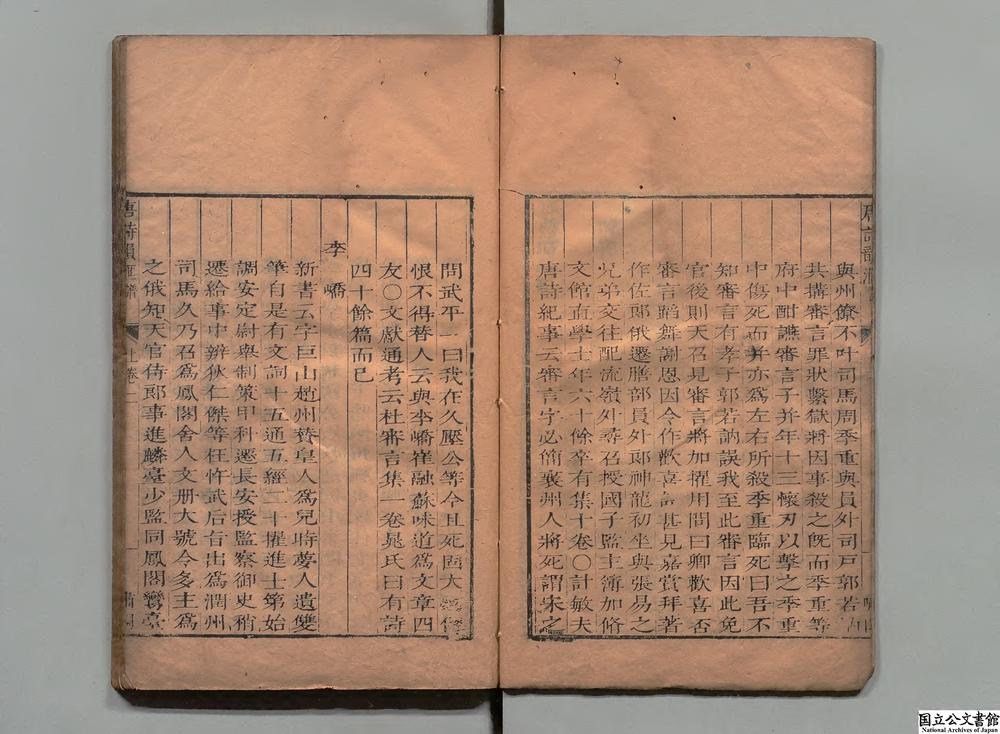 與州僚不叶司馬周季重與員外司戶郭若訥
共搆審言罪狀繫獄將因事殺之旣而季重等
府中酣讌審言子并年十三懷刃以擊之季重
中傷死而并亦爲左右所殺季重臨死曰吾不
知審言有孝子郭若訥誤我至此審言因此免
官後則天召見審言將加擢用問曰卿歡喜否
審言蹈舞謝恩因令作歡喜詩甚見嘉賞拜著
作佐郎俄遷膳部員外郎神龍初坐與張易之
兄弟交往配流嶺外尋召授國子監主簿加脩
文館直學士年六十餘卒有集十卷〇計敏夫
唐詩紀事云審言字必簡襄州人將死謂宋之
問武平一曰我在久壓公等今且死固大
恨不得替人云與李嶠崔融蘇味道爲文章四
友〇文獻通考云杜審言集一卷晁氏曰有詩
四十餘篇而已
李嶠
新書云字巨山趙州贊皇人爲兒時夢人遺雙
筆自是有文詞十五通五經二十擢進士第始
調安定尉舉制策甲科遷長安授監察御史稍
遷給事中辨狄仁傑等枉忤武后旨出爲潤州
司馬久乃召爲鳳閣舍人文册大號令多主爲
之俄知天官侍郎事進麟臺少監同鳳閣鸞臺
唐詩韻匯 上卷二
国立公文書館
National Archives of Japan